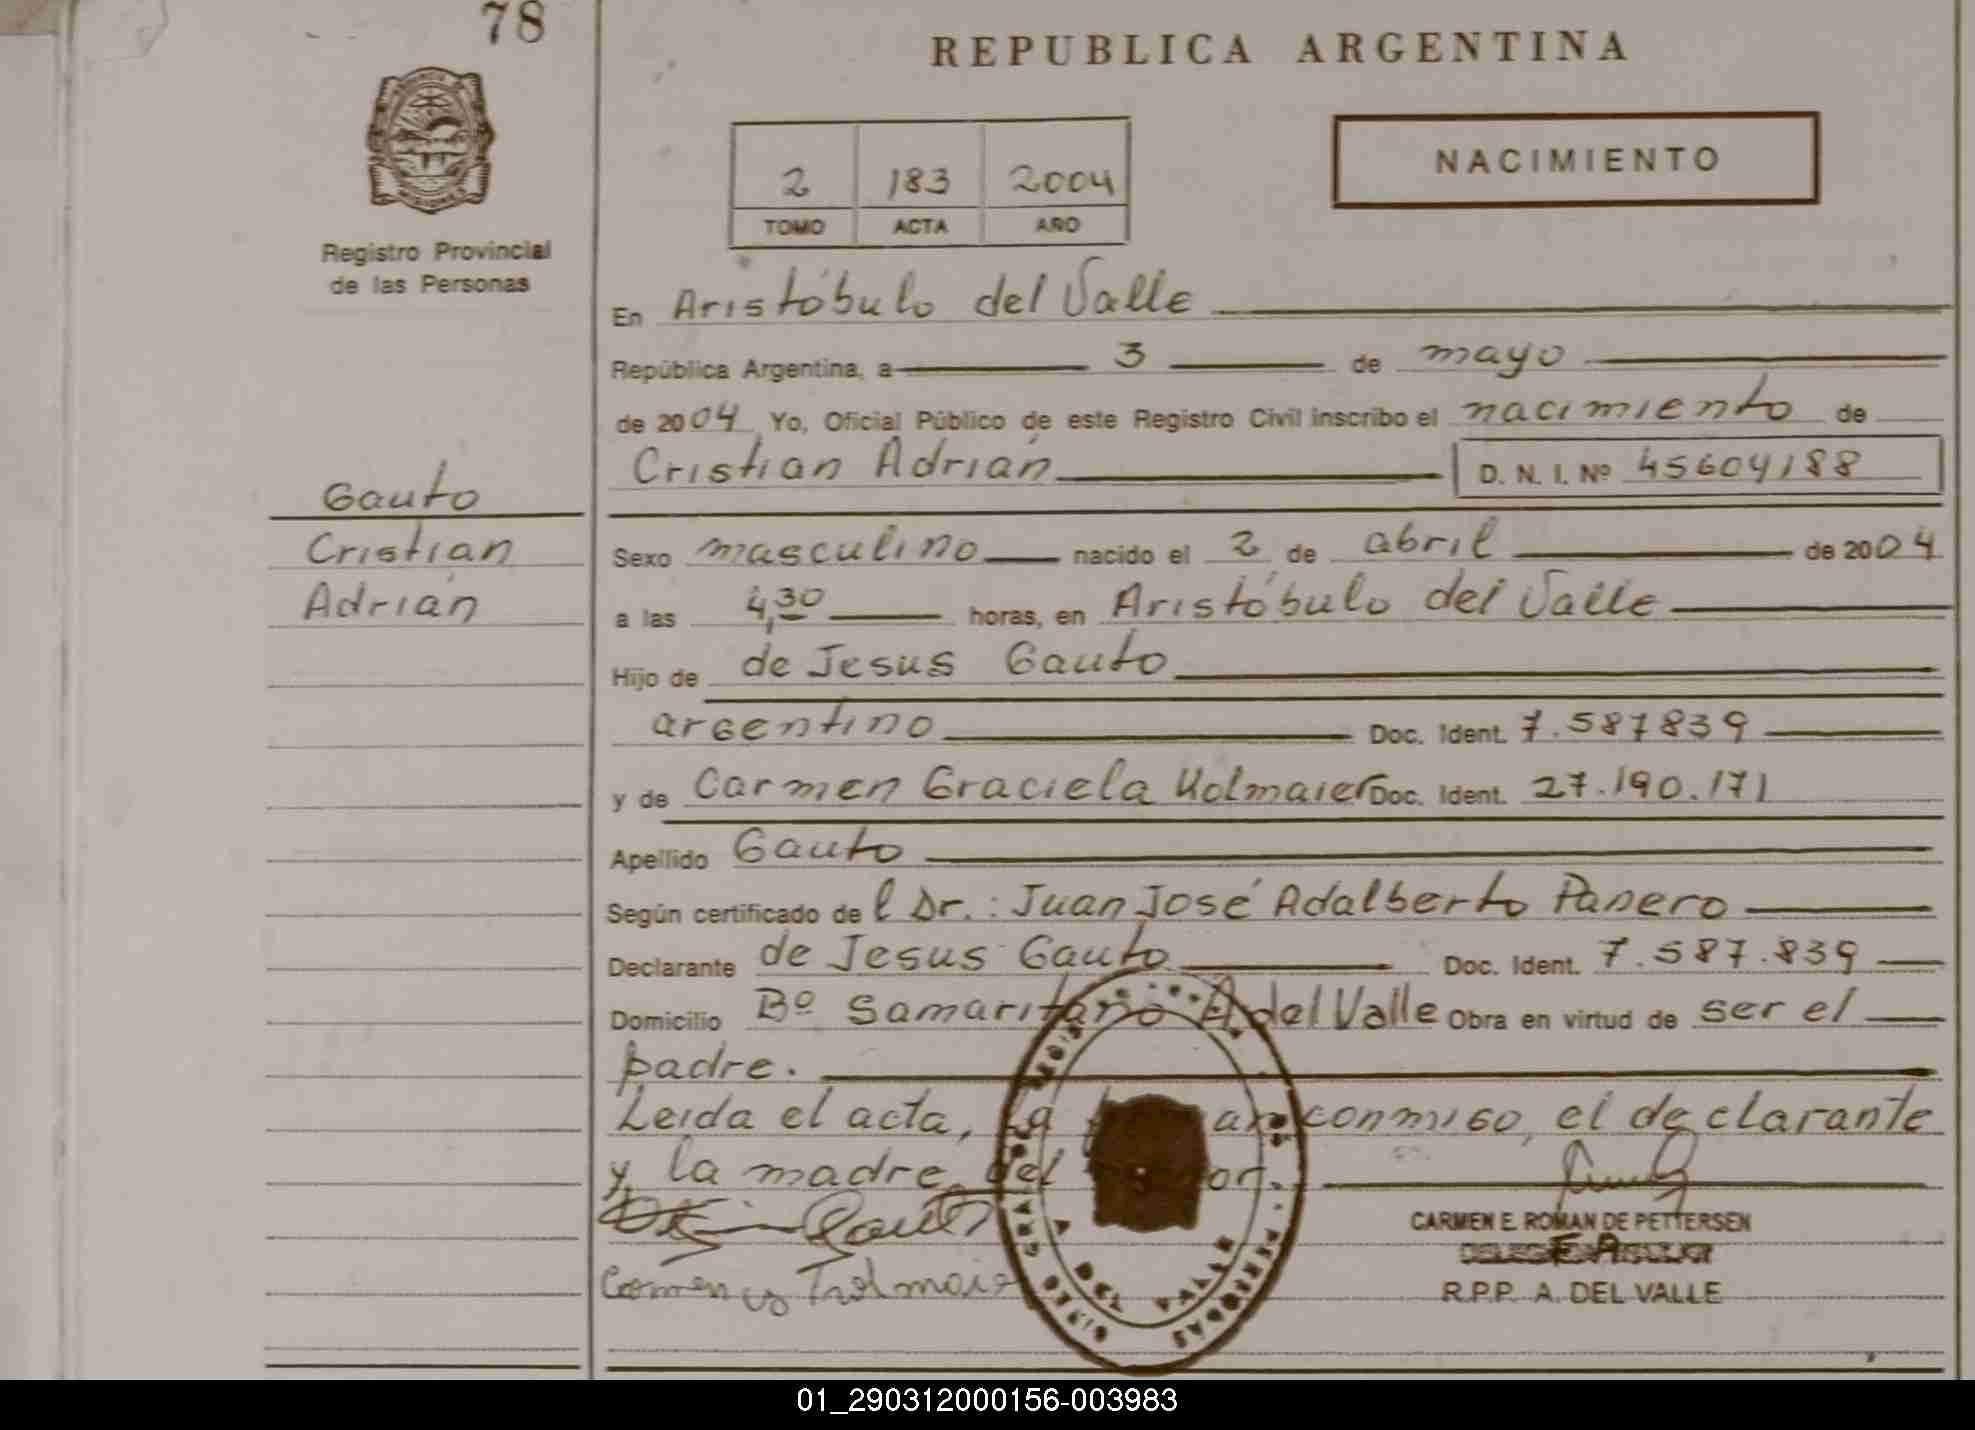 78
REPUBLICA ARGENTINA
NACIMIENTO
2 183 2004
TOMO ACTA AÑO
Registro Provincial
de las Personas
En Aristóbulo del Valle
República Argentina, a 3 de mayo
de 2004 Yo, Oficial Público de este Registro Civil inscribo el nacimiento de
Cristian Adrián D. N. I. Nº 45604188
Gauto
Cristian
Adrián
Sexo masculino nacido el 2 de abril de 2004
a las 4,30 horas, en Aristóbulo del Valle
Hijo de de Jesus Gauto
argentino Doc. Ident. 7.587839
y de Carmen Graciela Holmaier Doc. Ident. 27.190.171
Apellido Gauto
Según certificado de l Dr.: Juan José Adalberto Panero
Declarante de Jesus Gauto Doc. Ident. 7.587.839
Domicilio Bº Samaritano A del Valle Obra en virtud de ser el
padre.
Leida el acta, la conmigo, el declarante
y la madre del
Gauto
CARMEN E. ROMAN DE PETTERSEN
R.P.P. A. DEL VALLE
A DEL VALLE
01_290312000156-003983